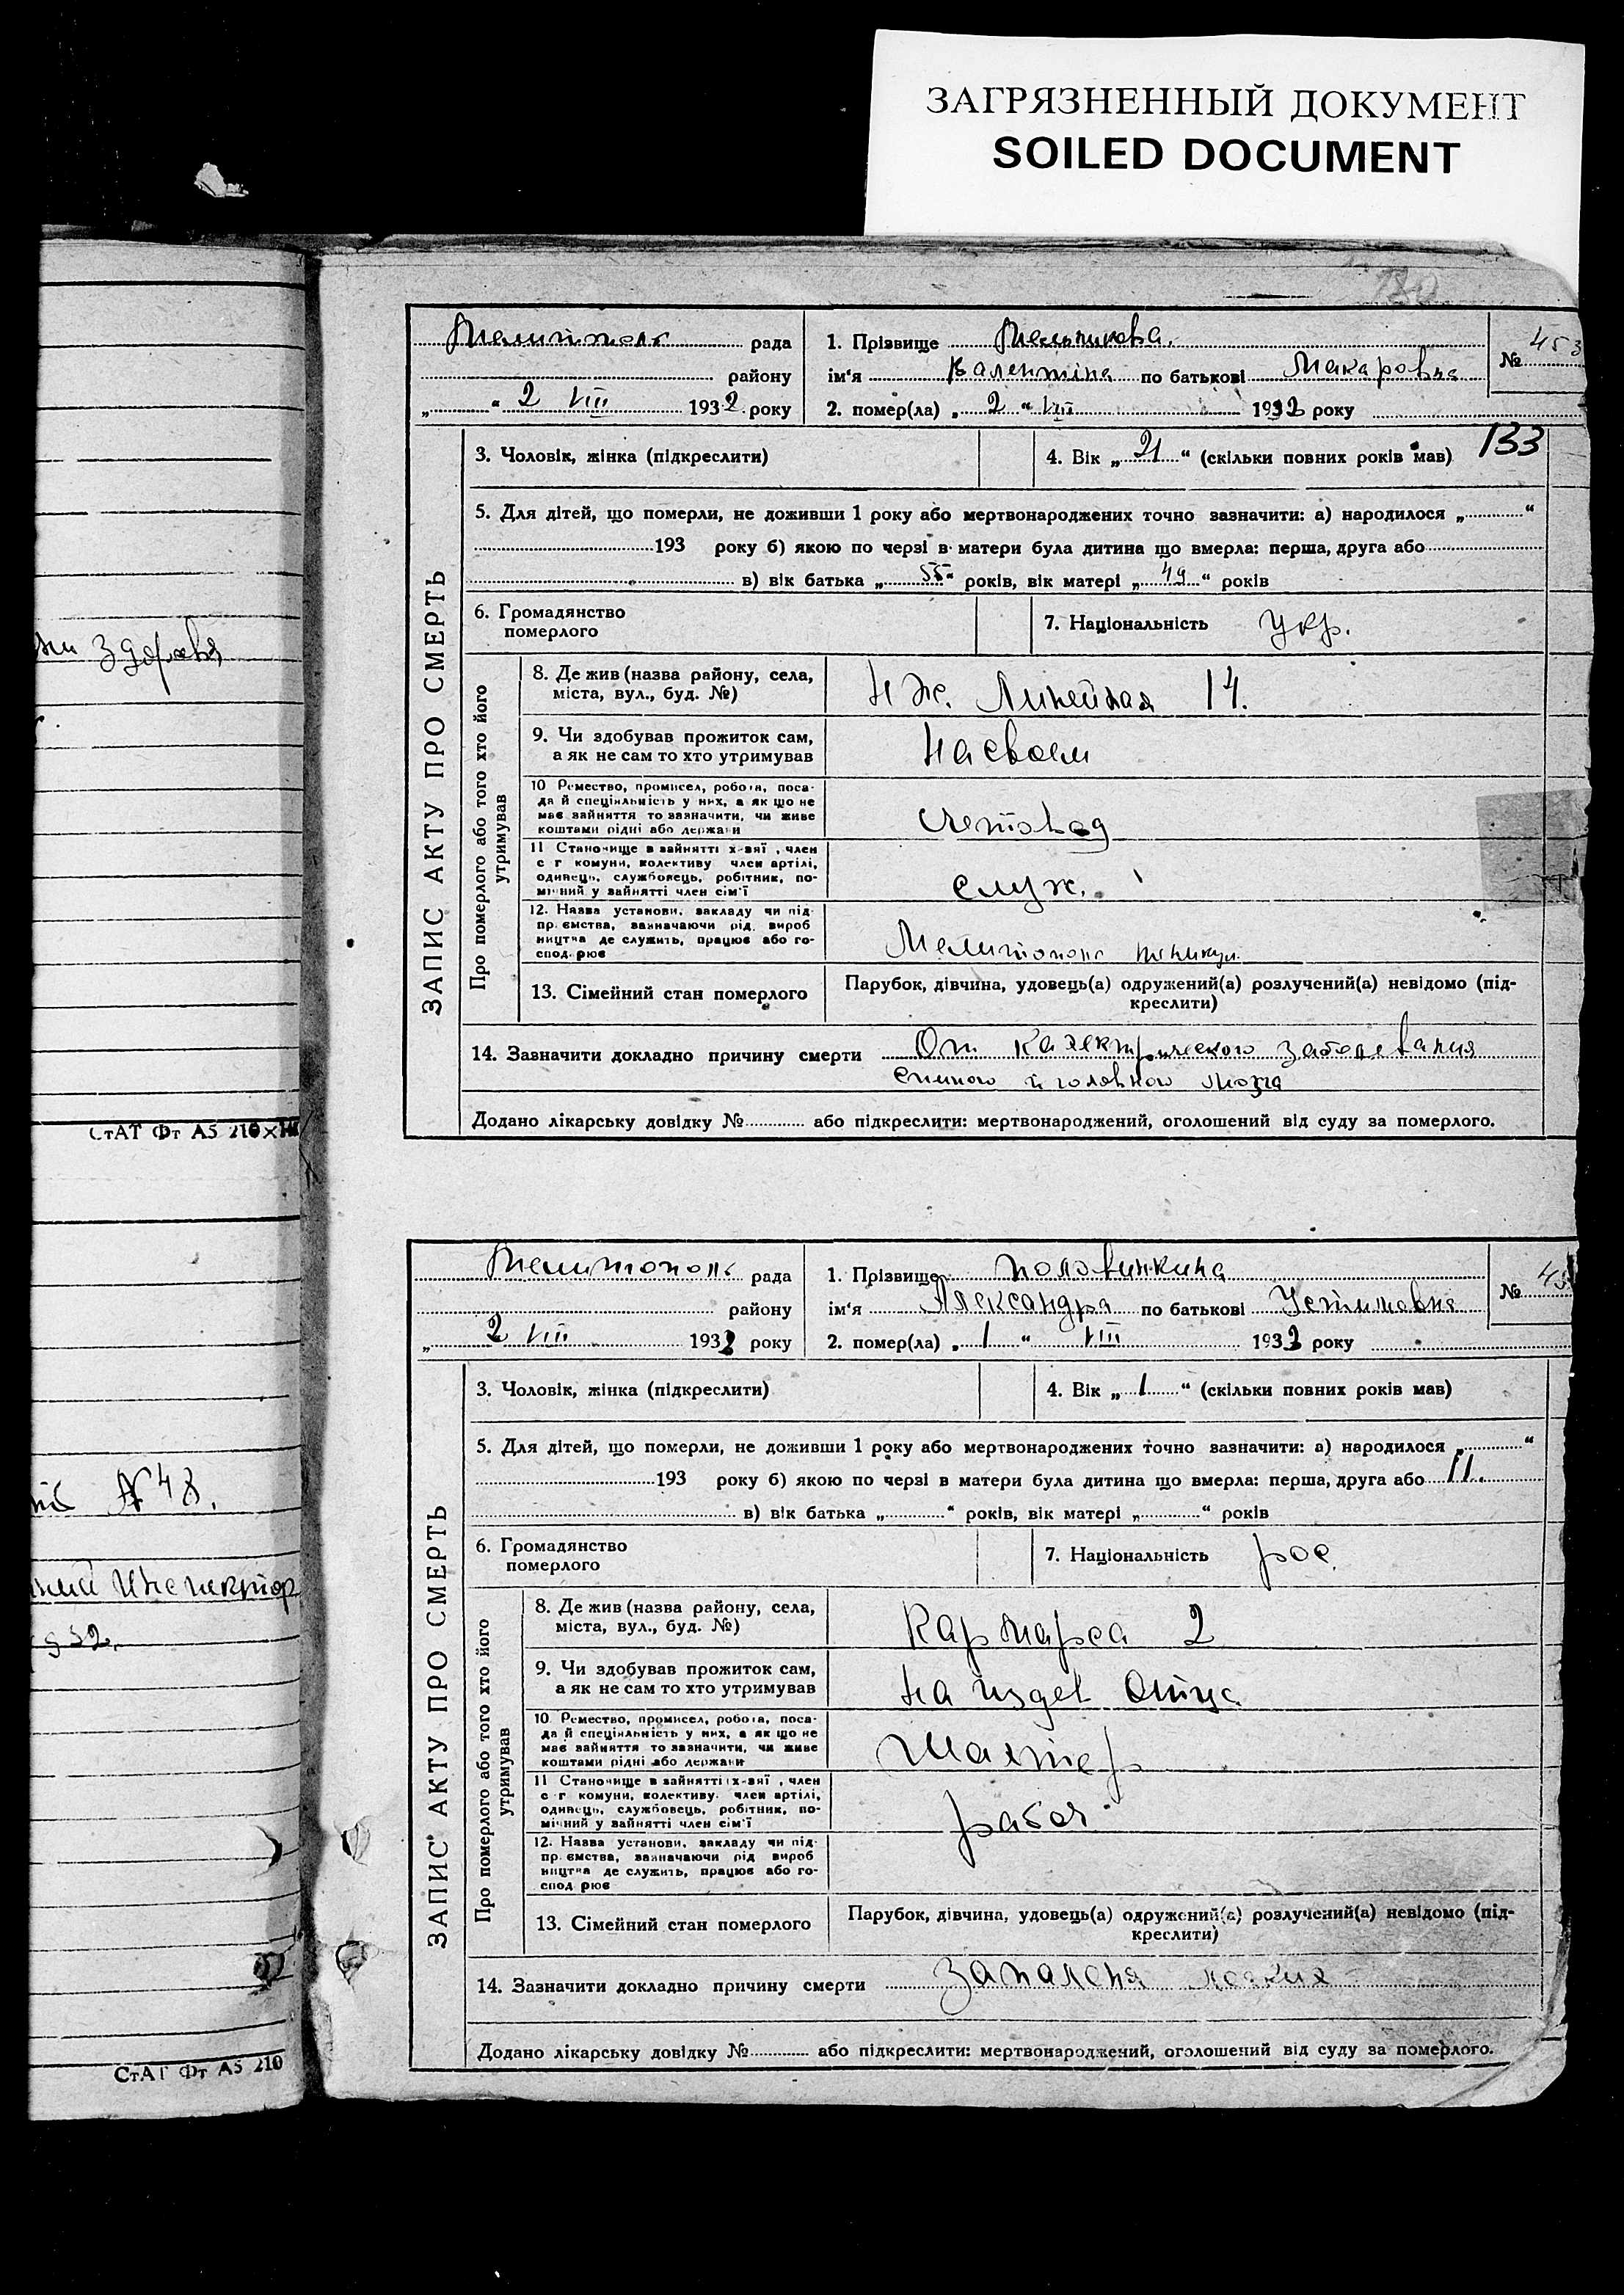 ЗАГРЯЗНЕННЫЙ ДОКУМЕНТ
SOILED DOCUMENT
здоровя
СтАТ Фт А5 210×
№ 48.
Инспектор
СтАТ Фт А5 210
180
ЗАПИС АКТУ ПРО СМЕРТЬ
Мелитополь рада
району
„ “ 2 VIII 1932 року
1. Прізвище Мельникова.
ім‘я Валентина по батькові Макаровна
2. помер(ла) „ 2 “ VIII 1932 року
№ 453
133
3. Чоловік, жінка (підкреслити)
4. Вік „ 21 “ (скільки повних років мав)
5. Для дітей, що померли, не доживши 1 року або мертвонароджених точно зазначити: а) народилося „ “
193 року б) якою по черзі в матери була дитина що вмерла: перша, друга або
в) вік батька „ 55 “ років, вік матері „ 49 “ років
6. Громадянство
померлого
7. Національність Укр.
Про померлого або того хто його
утримував
8. Де жив (назва району, села,
міста, вул., буд. №)
Н Ж. Линейная 14.
9. Чи здобував прожиток сам,
а як не сам то хто утримував
На своем
10 Ремество, промисел, робота, поса-
да й спеціяльність у них, а як що не
має зайняття то зазначити, чи живе
коштами рідні або держави
Счетовод
11 Становище в зайнятті х-ві , член
с г комуни, колективу член артілі,
одинець, службовець, робітник, по-
мічний у зайнятті член сім'ї
служ.
12. Назва установи, закладу чи під-
пр ємства, зазначаючи рід вироб
ництва де служить, працює або го-
спод рює
Мелитополь
13. Сімейний стан померлого
Парубок, дівчина, удовець(а) одружений(а) розлучений(а) невідомо (під-
креслити)
14. Зазначити докладно причину смерти От заболевания
спиного й головного мозга
Додано лікарську довідку № або підкреслити: мертвонароджений, оголошений від суду за померлого.
ЗАПИС АКТУ ПРО СМЕРТЬ
Мелитополь рада
району
„ 2 VIII 1932 року
1. Прізвище Половинкина
ім‘я Александра по батькові Устимовна
2. помер(ла) „ 1 “ VIII 1932 року
№ 45
3. Чоловік, жінка (підкреслити)
4. Вік „ 1 “ (скільки повних років мав)
5. Для дітей, що померли, не доживши 1 року або мертвонароджених точно зазначити: а) народилося „ “
193 року б) якою по черзі в матери була дитина що вмерла: перша, друга або 11.
в) вік батька „ “ років, вік матері „ “ років
6. Громадянство
померлого
7. Національність рос.
Про померлого або того хто його
утримував
8. Де жив (назва району, села,
міста, вул., буд. №)
Кар Маркса 2
9. Чи здобував прожиток сам,
а як не сам то хто утримував
На издев Отца
10. Ремество, промисел, робота, поса-
да й спеціяльність у них, а як що не
має зайняття то зазначити, чи живе
коштами рідні або держави
Шахтер
11 Становище в зайнятті х-ві , член
с г комуни, колективу член артілі,
одинець, службовець, робітник, по-
мічний у зайнятті член сім'ї
рабоч
12. Назва установи, закладу чи під-
пр ємства, зазначаючи рід вироб
ництва де служить, працює або го-
спод рює
13. Сімейний стан померлого
Парубок, дівчина, удовець(а) одружений(а) розлучений(а) невідомо (під-
креслити)
14. Зазначити докладно причину смерти Запаленя легких
Додано лікарську довідку № або підкреслити: мертвонароджений, оголошений від суду за померлого.